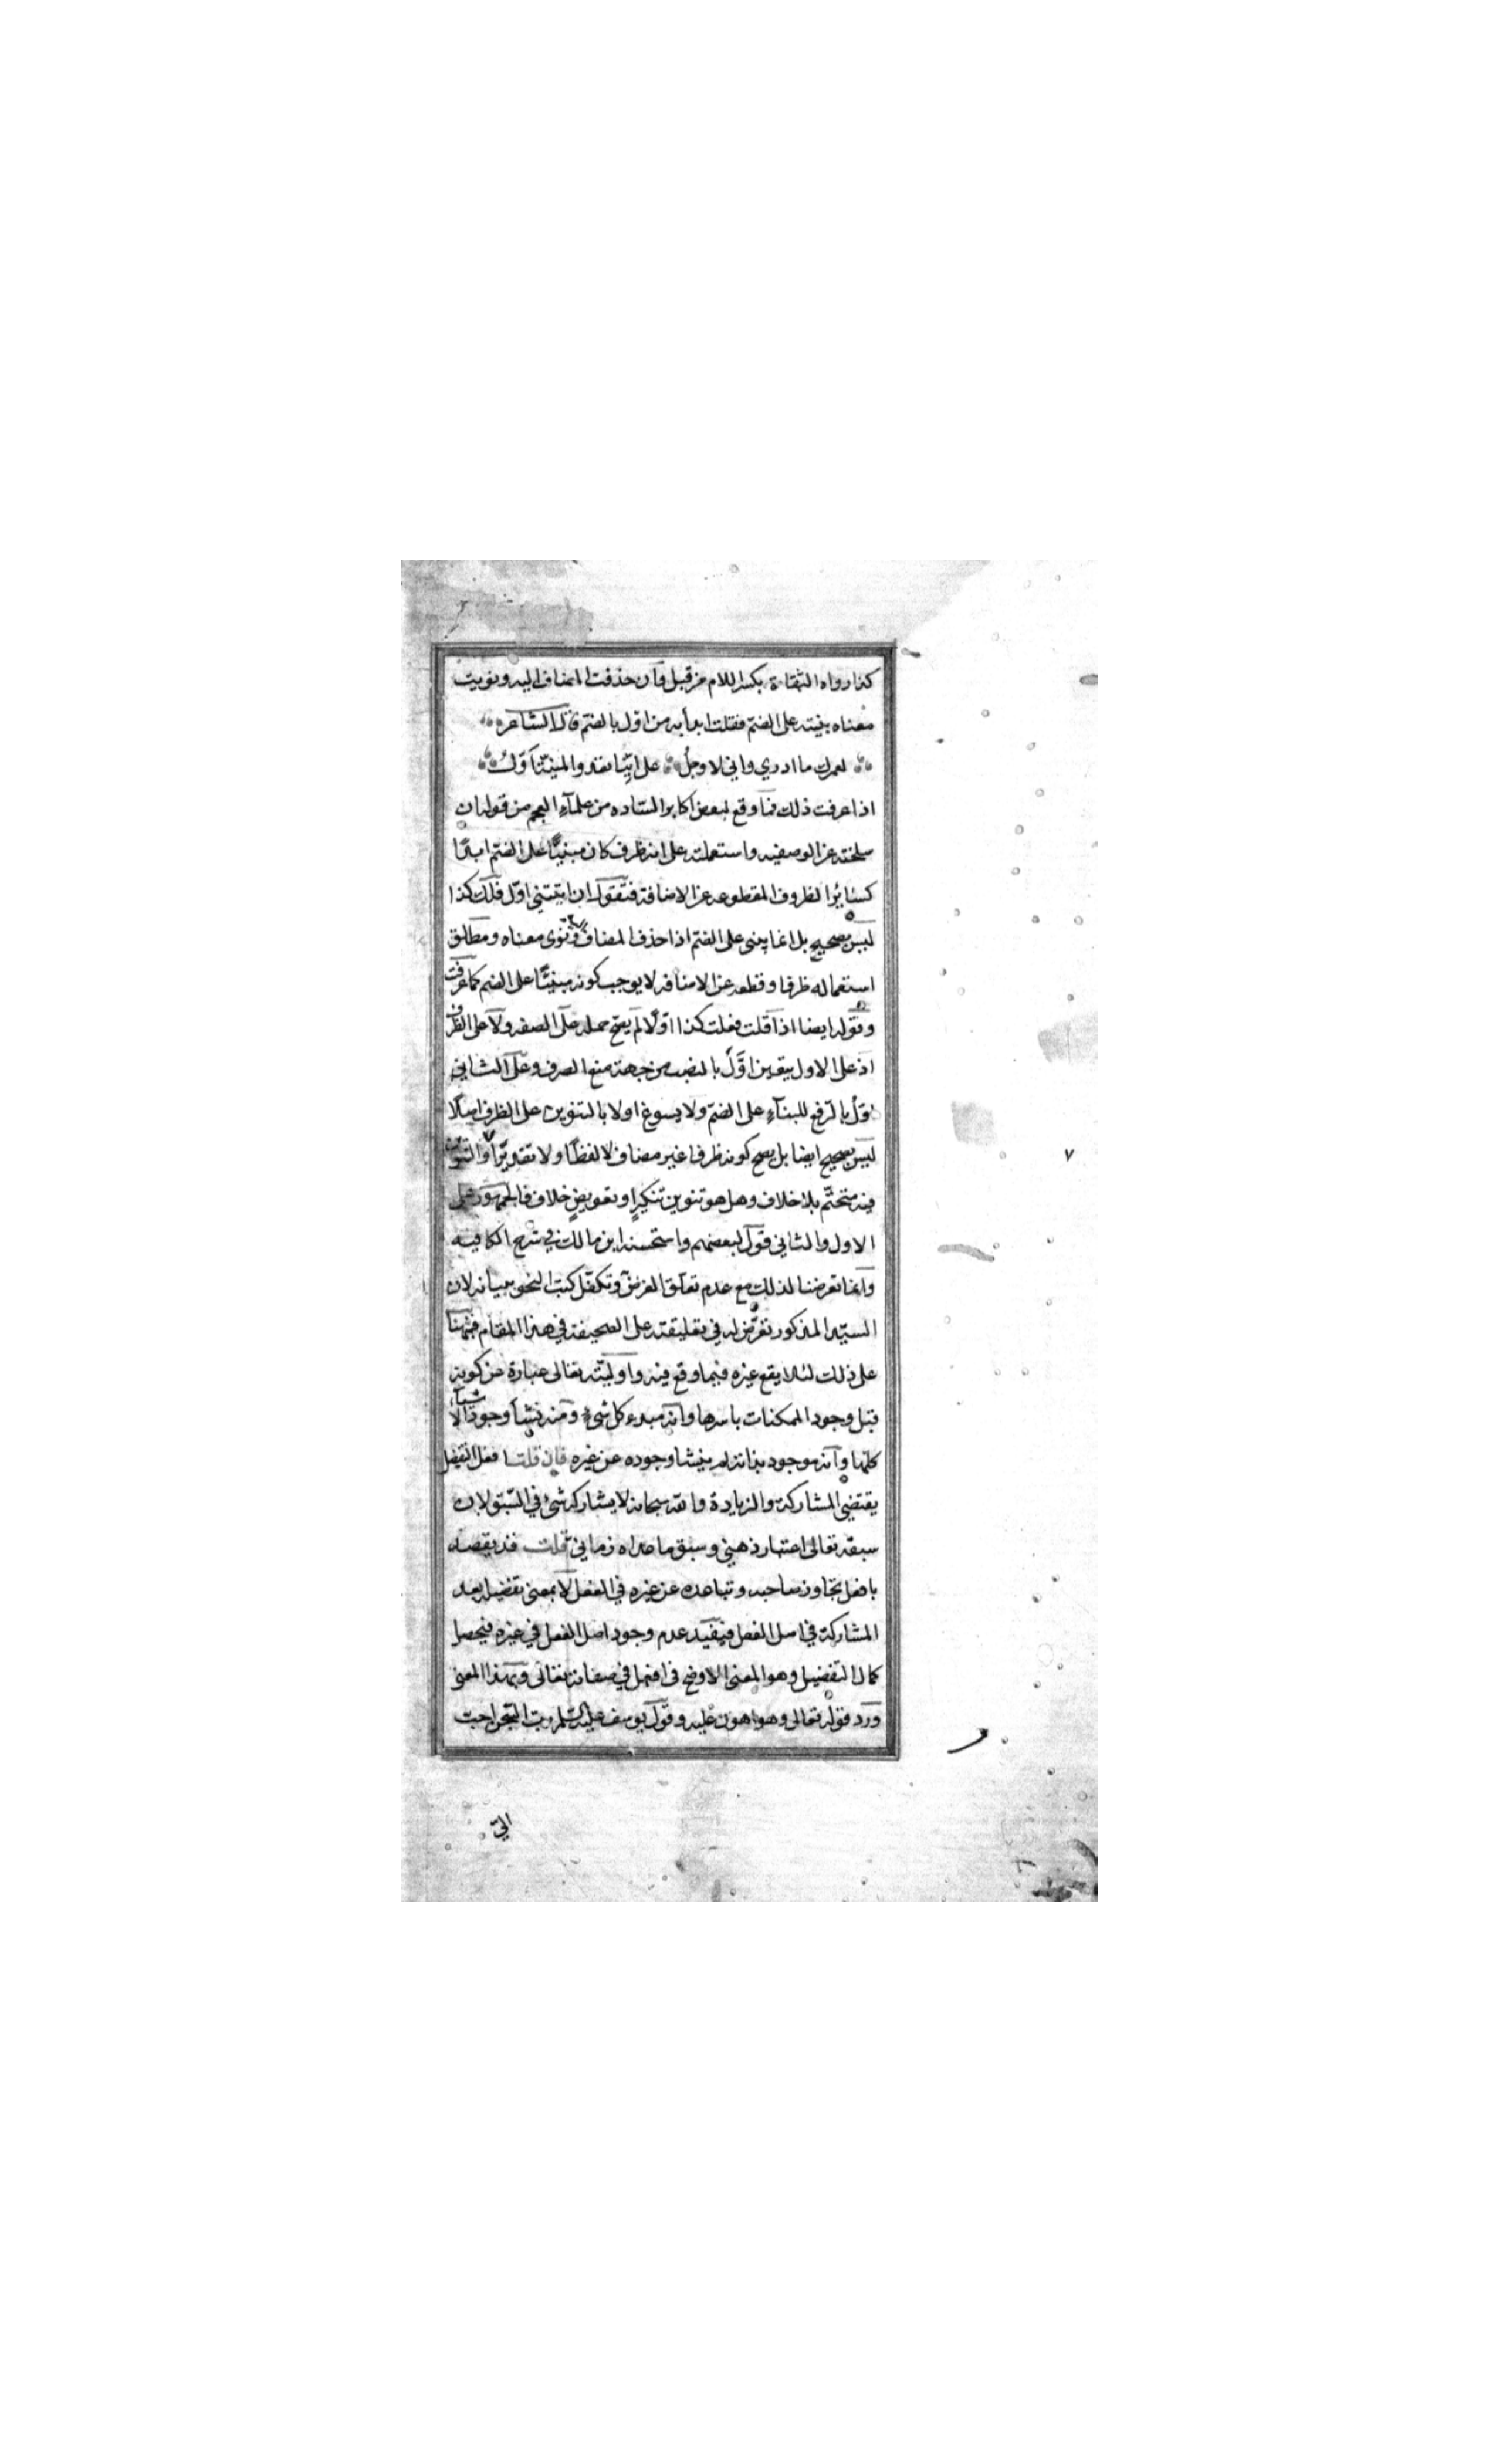 كذا رواه الثقاة بكسر اللام من قبل وان حذفت المضاف اليه ونويت
معناه بنيته على الضم فقلت ابدأ به من اول بالضم قال الشاعر
لعمرك ما ادري واني لاوجل على ايّنا تعدو المنيّة اوّلُ
اذا عرفت ذلك فما وقع لبعض اكابر الساده من علمآء العجم من قوله ان
سلخته عن الوصفيه واستعملته على انه ظرف كان مبنيّا على الضم ابدًا
كسائر الظروف المقطوعه عن الاضافة فتقول ان اتيتني اوّل فلك كذا
ليس بصحيح بل انما يبنى على الضم اذا حذف المضاف ونوى معناه ومطلق
استعماله ظرفا وقطعه عن الاضافه لا يوجب كونه مبنيّا على الضم كما عرفت
وقوله ايضا اذا قلت فعلت كذا اوّلًا لم يصح حمله على الصفه ولا على الظرف
اذ على الاول يتعين اوّلَ بالنصب من جهة منع الصرف وعلى الثاني
اوّلُ بالرفع للبنآء على الضم ولا يسوغ اولا بالتنوين على الظرف اصلًا
ليس بصحيح ايضا بل يصح كونه ظرفا غير مضاف لا لفظًا ولا تقديرًا والتنوين
فيه متحتّم بلا خلاف وهل هو تنوين تنكيرٍ او تعويضٍ خلاف فالجمهور على
الاول والثاني قول لبعضهم واستحسنه ابن مالك في شرح الكافيه
وانما تعرضنا لذلك مع عدم تعلق الغرض وتكفّل كتب النحو ببيانه لان
السيّد المذكور تعرّض له في تعليقته على الصحيفة في هذا المقام فنبّهنا
على ذلك لئلا يقع غيره فيما وقع فيه واوليّته تعالى عبارة عن كونه
قبل وجود الممكنات باسرها وانه مبدء كل شيء ومنه نشأ وجود الاشيآء
كلها وانه موجود بذاته لم ينشا وجوده عن غيره فان قلت افعل التفضيل
يقتضي المشاركة والزيادة والله سبحانه لا يشاركه شئ في السّبق لان
سبقه تعالى اعتبار ذهني وسبق ما عداه زماني قلت قد يقصد
بافعل تجاوز صاحبه وتباعده عن غيره في الفعل لا بمعنى تفضيله بعد
المشاركة في اصل الفعل فيفيد عدم وجود اصل الفعل في غيره فيحصل
كمال التفضيل وهو المعنى الاوضح في افعل في صفاته تعالى وبهذا المعنى
ورد قوله تعالى وهو اهون عليه وقول يوسف عليه السلم رب السّجن احب
اليّ
٧